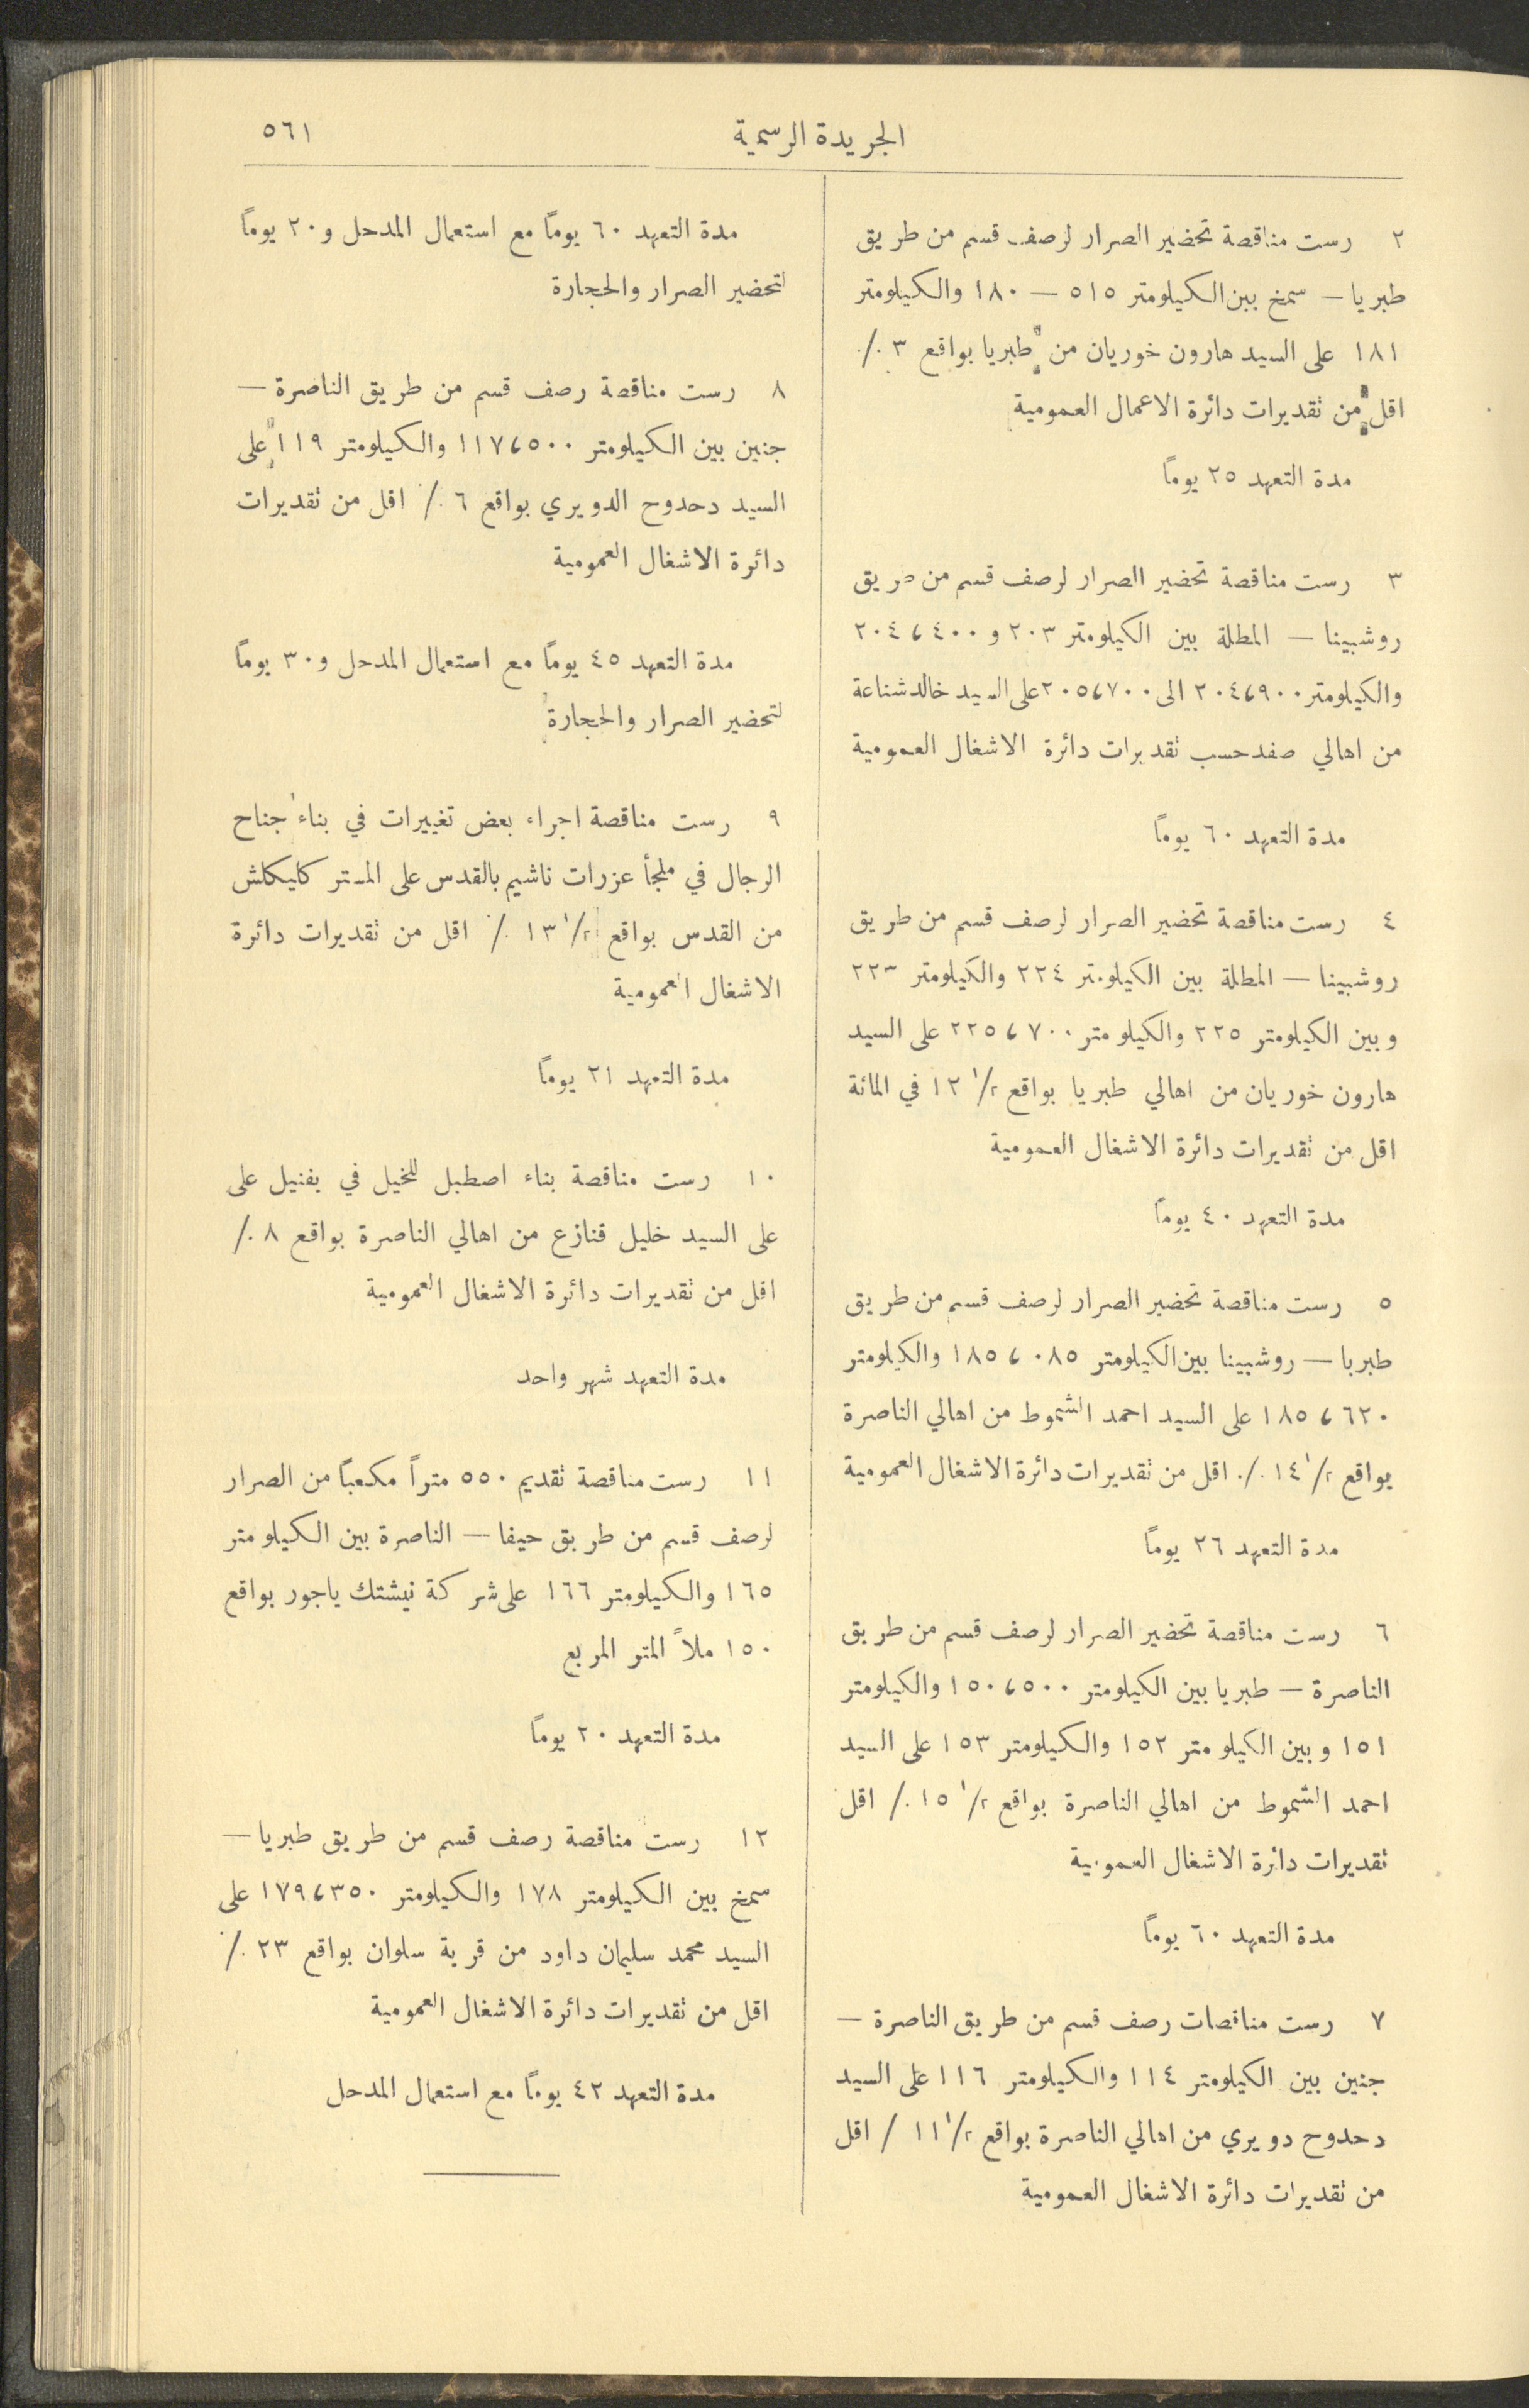 الجريدة الرسمية
٥٦١
٢ رست مناقصة تحضير الصرار لرصف قسم من طريق
طبريا — سمخ بين الكيلومتر ٥١٥ — ١٨٠ والكيلومتر
١٨١ على السيد هارون خوريان من طبريا بواقع ٣ ٪
اقل من تقديرات دائرة الاعمال العمومية
مدة التعهد ٢٥ يوماً
٣ رست مناقصة تحضير الصرار لرصف قسم من طريق
روشبينا — المطلة بين الكيلومتر ٢٠٣ و ٢٠٤،٤٠٠
والكيلومتر ٢٠٤،٩٠٠ الى ٢٠٥،٧٠٠ على السيد خالد شناعة
من اهالي صفد حسب تقديرات دائرة الاشغال العمومية
مدة التعهد ٦٠ يوماً
٤ رست مناقصة تحضير الصرار لرصف قسم من طريق
روشبينا — المطلة بين الكيلومتر ٢٢٤ والكيلومتر ٢٢٣
وبين الكيلومتر ٢٢٥ والكيلو متر ٢٢٥،٧٠٠ على السيد
هارون خوريان من اهالي طبريا بواقع ١/٢ ١٢ في المائة
اقل من تقديرات دائرة الاشغال العمومية
مدة التعهد ٤٠ يوماً
٥ رست مناقصة تحضير الصرار لرصف قسم من طريق
طبريا — روشبينا بين الكيلومتر ١٨٥،٠٨٥ والكيلومتر
١٨٥،٦٢٠ على السيد احمد الشموط من اهالي الناصرة
بواقع ١/٢ ١٤ ٪ اقل من تقديرات دائرة الاشغال العمومية
مدة التعهد ٢٦ يوماً
٦ رست مناقصة تحضير الصرار لرصف قسم من طريق
الناصرة — طبريا بين الكيلومتر ١٥٠،٥٠٠ والكيلومتر
١٥١ وبين الكيلو متر ١٥٢ والكيلومتر ١٥٣ على السيد
احمد الشموط من اهالي الناصرة بواقع ١/٢ ١٥ ٪ اقل
تقديرات دائرة الاشغال العمومية
مدة التعهد ٦٠ يوماً
٧ رست مناقصات رصف قسم من طريق الناصرة —
جنين بين الكيلومتر ١١٤ والكيلومتر ١١٦ على السيد
دحدوح دويري من اهالي الناصرة بواقع ١/٢ ١١ / اقل
من تقديرات دائرة الاشغال العمومية
مدة التعهد ٦٠ يوماً مع استعمال المدحل و٢٠ يوماً
لتحضير الصرار والحجارة
٨ رست مناقصة رصف قسم من طريق الناصرة —
جنين بين الكيلومتر ١١٧،٥٠٠ والكيلومتر ١١٩ على
السيد دحدوح الدويري بواقع ٦ ٪ اقل من تقديرات
دائرة الاشغال العمومية
مدة التعهد ٤٥ يوماً مع استعمال المدحل و٣٠ يوماً
لتحضير الصرار والحجارة
٩ رست مناقصة اجراء بعض تغييرات في بناء جناح
الرجال في ملجأ عزرات ناشيم بالقدس على المستر كايكلش
من القدس بواقع ١/٢ ١٣ ٪ اقل من تقديرات دائرة
الاشغال العمومية
مدة التعهد ٢١ يوماً
١٠ رست مناقصة بناء اصطبل للخيل في يفنيل على
على السيد خليل قنازع من اهالي الناصرة بواقع ٨ ٪
اقل من تقديرات دائرة الاشغال العمومية
مدة التعهد شهر واحد
١١ رست مناقصة تقديم ٥٥٠ متراً مكعباً من الصرار
لرصف قسم من طريق حيفا — الناصرة بين الكيلو متر
١٦٥ والكيلومتر ١٦٦ على شركة نيشتك ياجور بواقع
١٥٠ ملاً المتر المربع
مدة التعهد ٢٠ يوماً
١٢ رست مناقصة رصف قسم من طريق طبريا —
سمخ بين الكيلومتر ١٧٨ والكيلومتر ١٧٩،٣٥٠ على
السيد محمد سليمان داود من قرية سلوان بواقع ٢٣ ٪
اقل من تقديرات دائرة الاشغال العمومية
مدة التعهد ٤٢ يوماً مع استعمال المدحل